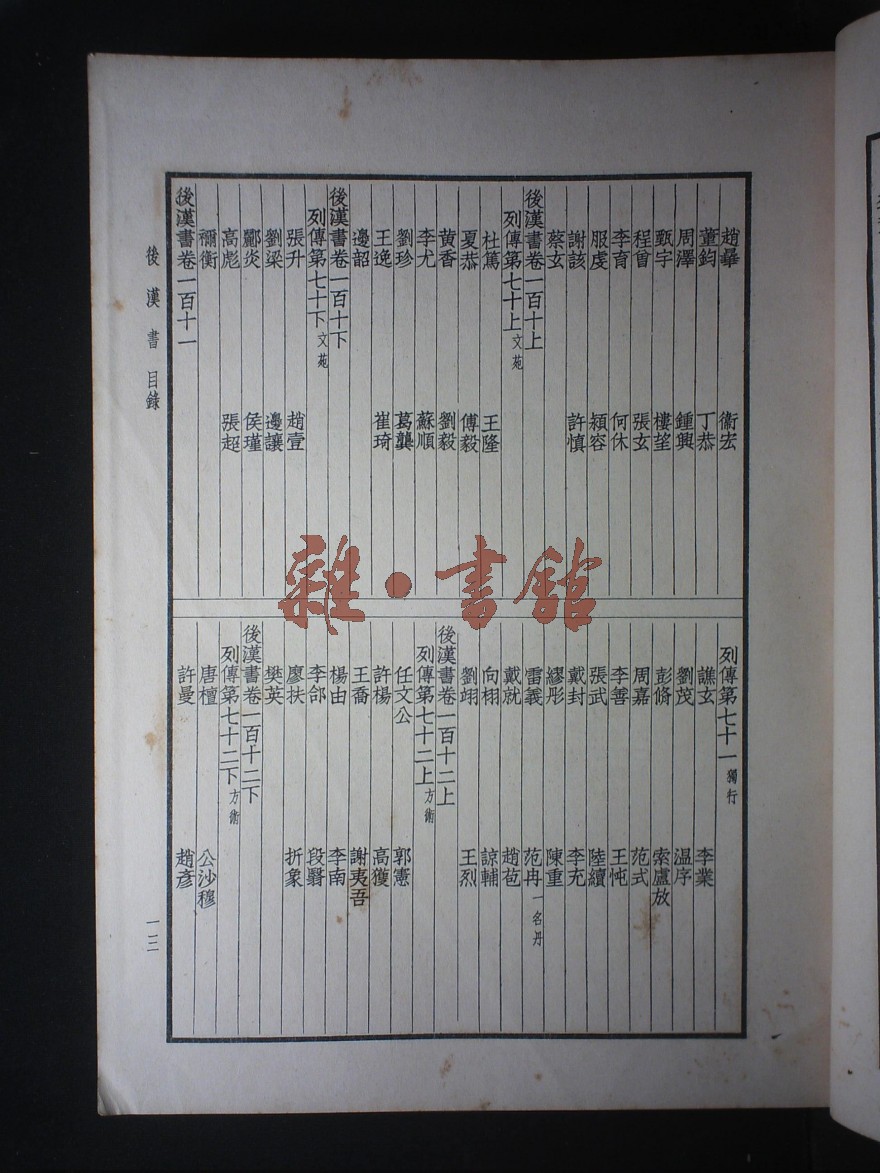 趙曄 衞宏
董鈞 丁恭
周澤 鍾興
甄宇 樓望
程曾 張玄
李育 何休
服虔 潁容
謝該 許慎
蔡玄
後漢書卷一百十上
列傳第七十上 文苑
杜篤 王隆
夏恭 傅毅
黃香 劉毅
李尤 蘇順
劉珍 葛龔
王逸 崔琦
邊韶
後漢書卷一百十下
列傳第七十下 文苑
張升 趙壹
劉梁 邊讓
酈炎 侯瑾
高彪 張超
禰衡
後漢書卷一百十一
列傳第七十一 獨行
譙玄 李業
劉茂 溫序
彭脩 索盧放
周嘉 范式
李善 王忳
張武 陸續
戴封 李充
繆肜 陳重
雷義 范冉 一名丹
戴就 趙苞
向栩 諒輔
劉翊 王烈
後漢書卷一百十二上
列傳第七十二上 方術
任文公 郭憲
許楊 高獲
王喬 謝夷吾
楊由 李南
李郃 段翳
廖扶 折象
樊英
後漢書卷一百十二下
列傳第七十二下 方術
唐檀 公沙穆
許曼 趙彥
後漢書 目錄
一三
雜·書館